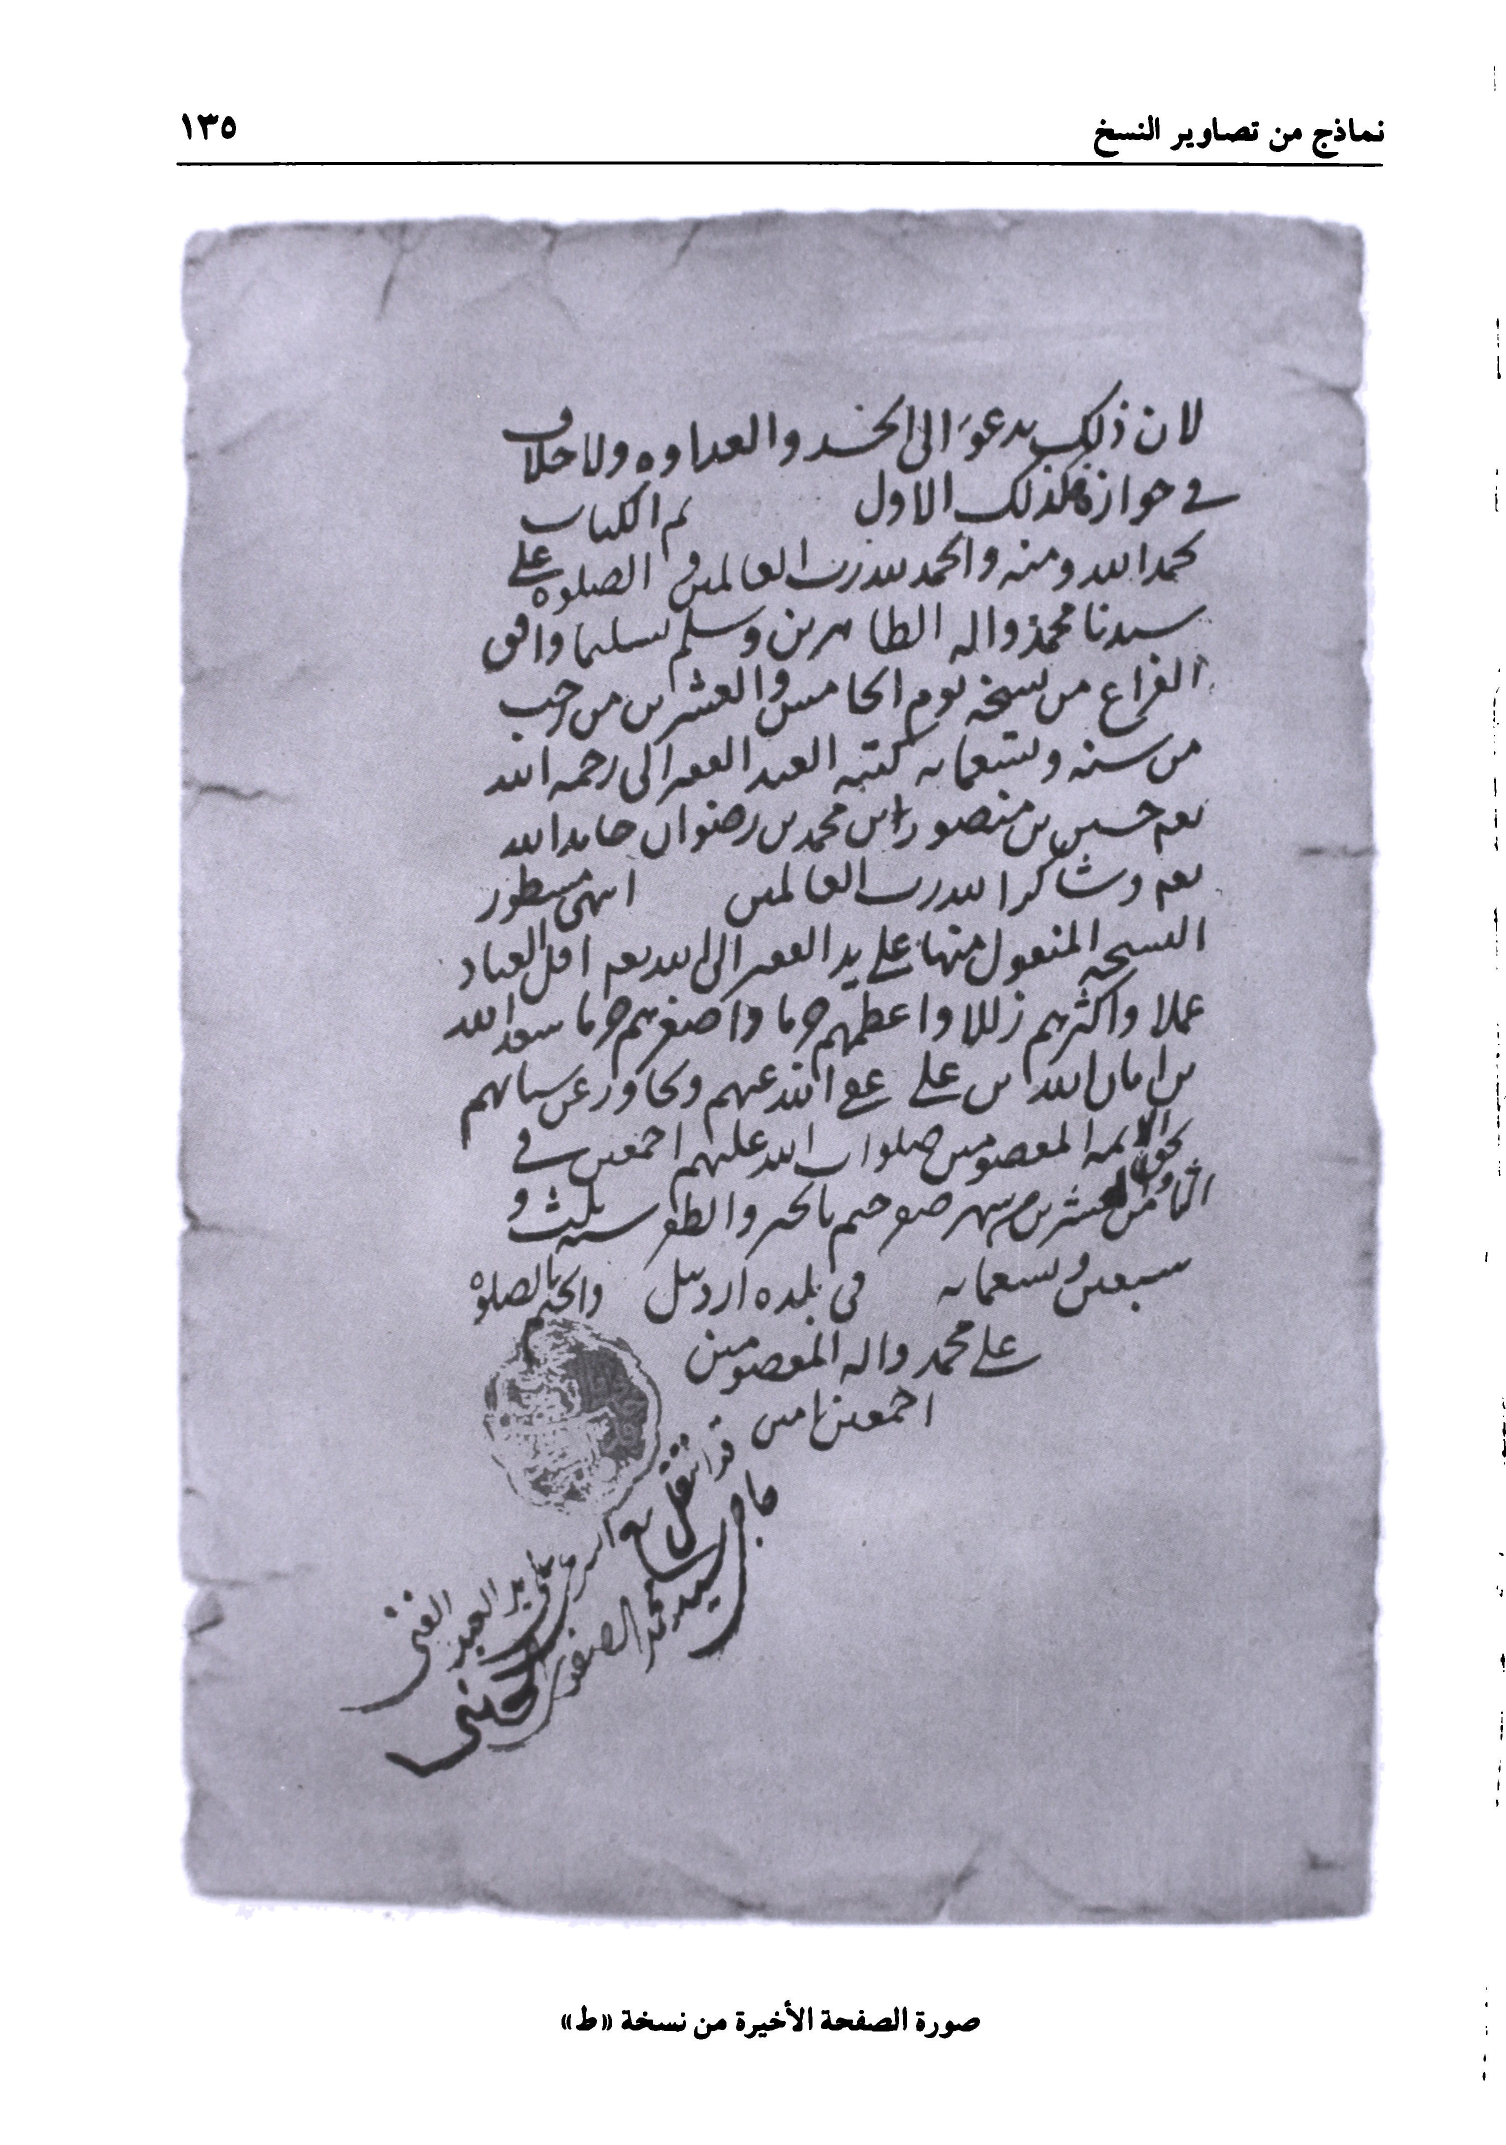 نماذج من تصاوير النسخ ١٣٥
لان ذلك يدعو الى الحسد والعداوه ولا خلاف
في جوازه كذلك الاول تم الكتاب
بحمد الله ومنه والحمد لله رب العالمين و الصلوه على
سيدنا محمد واله الطاهرين وسلم تسليما وافق
الفراغ من نسخه يوم الخامس والعشرين من رجب
من سنه وتسعمايه كتبه العبد الفقير الى رحمه الله
تعم حسين بن منصور بن محمد بن رضوان حامدا لله
تعم وشاكرا لله رب العالمين انتهى مسطور
النسخه المنقول منها على يد الفقير الى الله تعم اقل العباد
عملا واكثرهم زللا واعظمهم جرما واصغرهم جرما سعد الله
بن امان الله بن علي عفى الله عنهم وتجاوز عن سياتهم
بحق الايمه المعصومين صلوات الله عليهم اجمعين في
الثامن والعشرين من شهر صفر ختم بالخير والظفر سنه ثلث و
سبعين وتسعمايه في بلده اردبيل والختم بالصلوة
على محمد واله المعصومين
اجمعين امين
قد انتقل
على يد العبد
الغنى
محمد
صورة الصفحة الأخيرة من نسخة «ط»